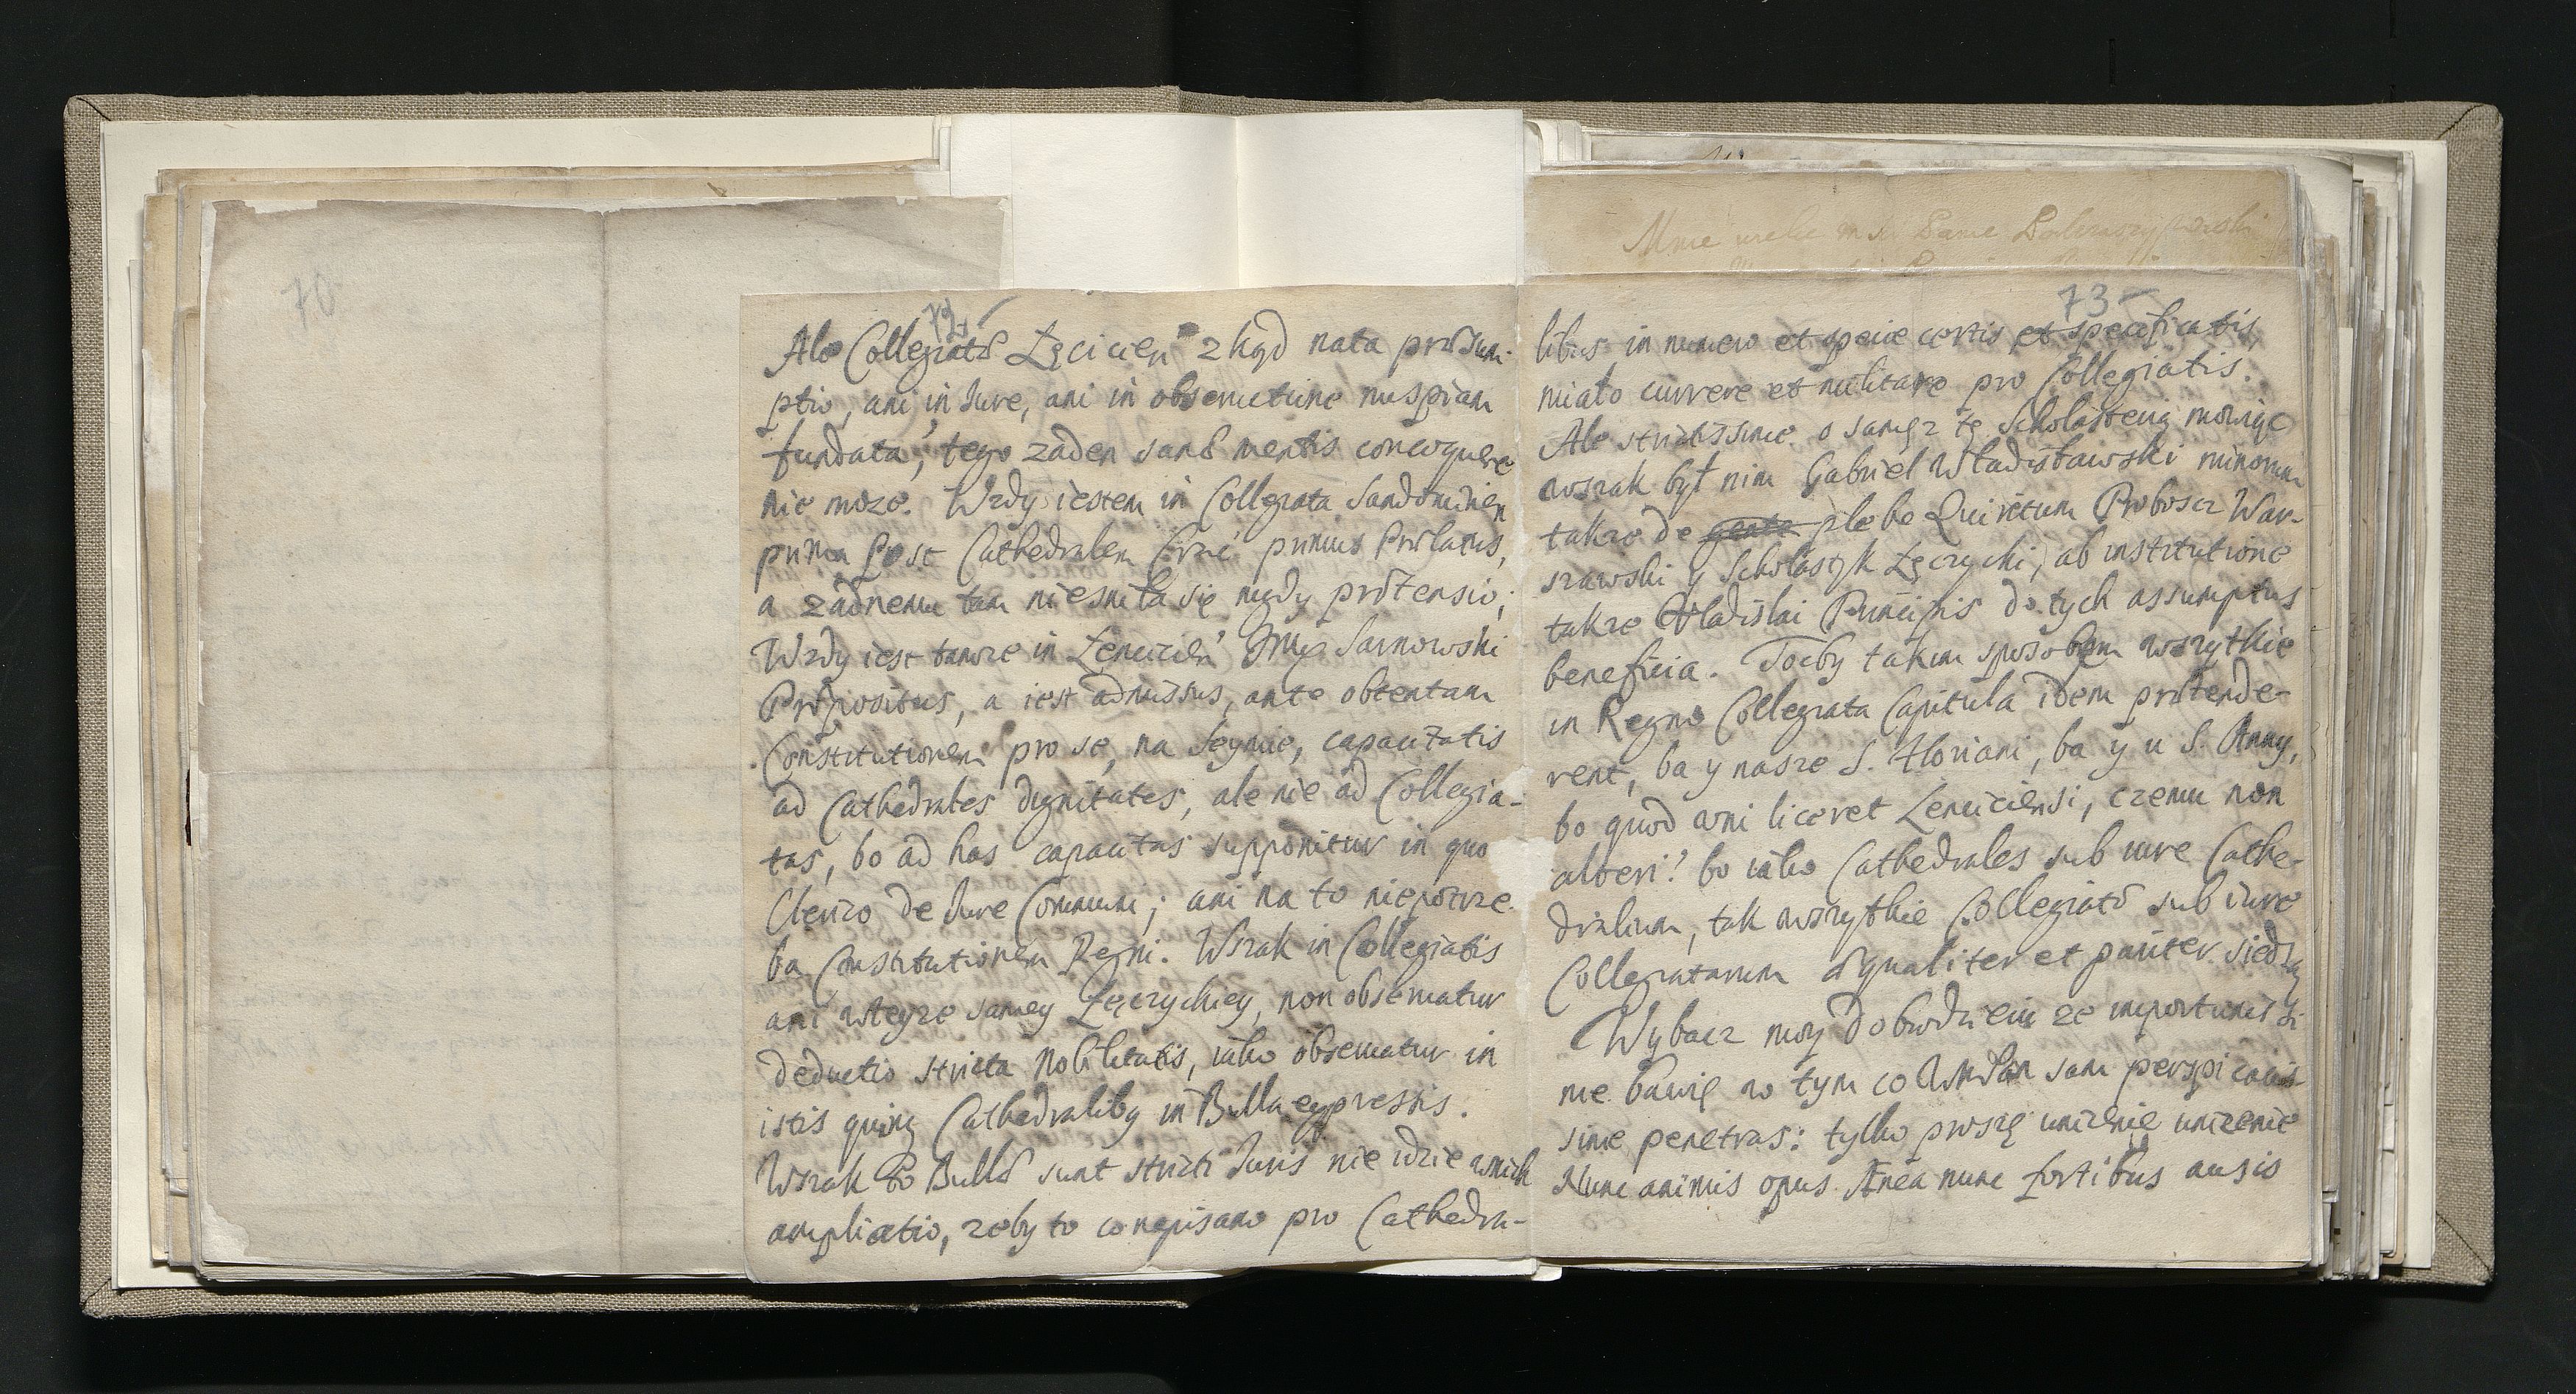 70
72
Ale Collegiatæ Lęcicien zkąd nata præsum-
ptio, ani in Jure, ani in observatione nuspiam
fundata, tego zaden sanæ mentis concoquere
nie moze. Wzdy iestem in Collegiata Sandomirien
prima post Cathedralem Crac primus Prælatus,
a zadnemu tam nie sniła się nigdy prætensio;
Wzdy iest tamze in Lencicien Jmx Sarnowski
Præpositus, a iest admissus, ante obtentam
Constitutionem pro se, na Seymie, capacitatis
ad Cathedrales dignitates, ale nie ad Collegia-
tas, bo ad has capacitas supponitur in quo
Clerico de Jure Communi; ani na to niepotrze-
ba Constitutionem Regni. Wszak in Collegiatis
ani wteyze samey Łęczyckiey, non observatur
deductio stricta Nobilitatis, iako observatur in
istis quinq Cathedralibq in Bulla expressis.
Wszak to Bullæ sunt stricti Juris nie idzie wnich
ampliatio, zeby to co napisano pro Cathedra-
73
libus in numero et specie certis et specificatis,
miało currere et militare pro Collegiatis.
Ale strictissime o samęz tę Scholasterią mowiąc
wszak był nim Gabriel Władisławski minorum
takze de plebe Quiritum Proboscz War-
szawski y Scholastyk Łęczycki, ab institutione
takze Vladislai Principis do tych assumptus
beneficia. Toćby takim sposobem wszytkie
in Regno Collegiata Capitula idem prætende-
rent, ba y nasze S. Floriani, ba y u S. Anny,
bo quod uni liceret Lenciciensi, czemu non
alteri? bo iako Cathedrales sub iure Cathe-
dralium, tak wszytkie Collegiatæ sub iure
Collegiatarum æqualiter et pariter siedzą
Wybacz moy Dobrodzieiu ze importunis si
me bawię w tym co WmPan sam perspicacis-
sime penetras: tylko proszę unizenie unizenie
Nunc animis opus Ænea nunc fortibus ausis